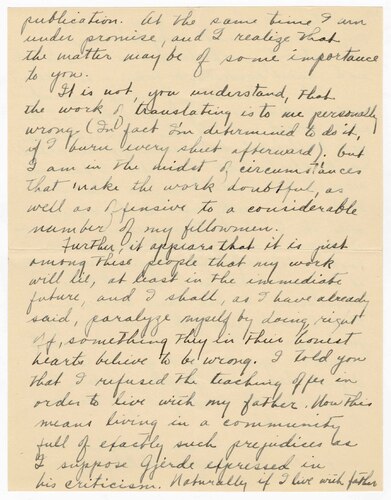 publication. At the same time I am
under promise, and I realize that
the matter may be of some importance
to you.
It is not, you understand, that
the work of translating is to me personally
wrong. (In fact I'm determined to do it,
if I burn every sheet afterward). But
I am in the midst of circumstances
that make the work doubtful, as
well as offensive to a considerable
number of my fellowmen.
Further, it appears that it is just
among these people that my work
will lie, at least in the immediate
future, and I shall, as I have already
said, paralyze myself by doing right
if, something they in their honest
hearts believe to be wrong. I told you
that I refused the teaching offer in
order to live with my father. Now this
means living in a community
full of exactly such prejudices as
I suppose Gjerde expressed in
his criticism. Naturally if I live with father